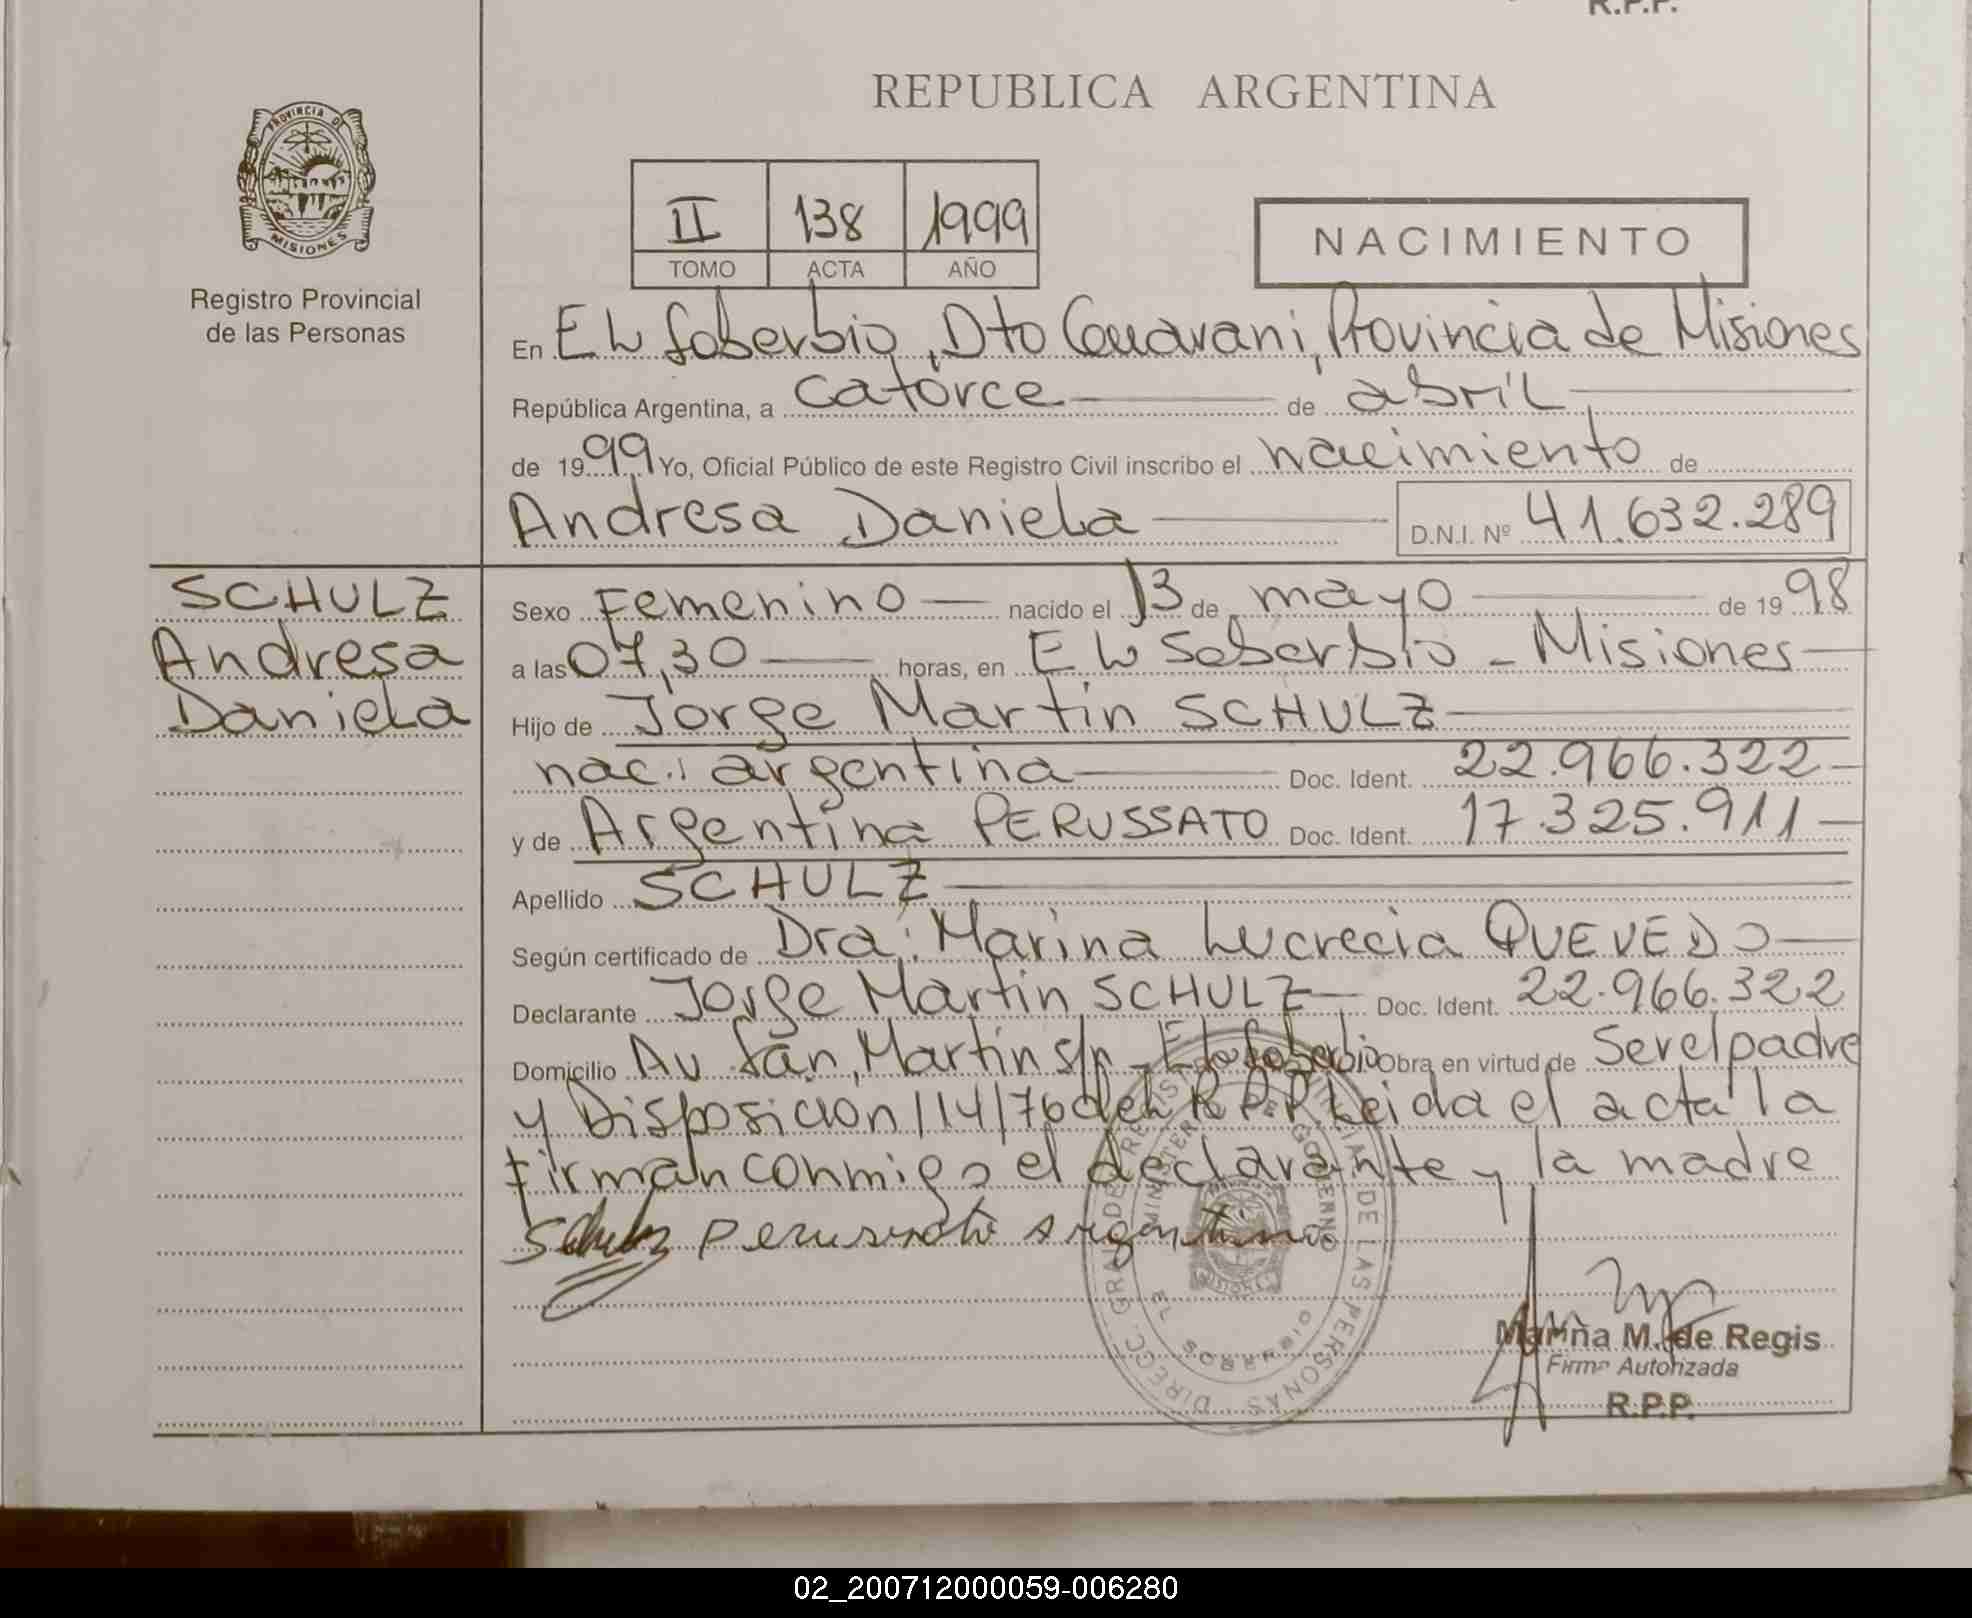 R.P.P.
REPUBLICA ARGENTINA
PROVINCIA DE
MISIONES
Registro Provincial
de las Personas
II 138 1999
TOMO ACTA AÑO
NACIMIENTO
En El Soberbio, Dto Guarani, Provincia de Misiones
República Argentina, a catorce de abril
de 1999 Yo, Oficial Público de este Registro Civil inscribo el nacimiento de
Andresa Daniela D.N.I. Nº 41.632.289
SCHULZ
Andresa
Daniela
Sexo Femenino nacido el 13 de mayo de 1998
a las 07,30 horas, en El Soberbio - Misiones
Hijo de Jorge Martin SCHULZ
nac.: argentina Doc. Ident. 22.966.322
y de Argentina PERUSSATO Doc. Ident. 17.325.911
Apellido SCHULZ
Según certificado de Dra: Marina Lucrecia QUEVEDO
Declarante Jorge Martin SCHULZ Doc. Ident. 22.966.322
Domicilio Av San Martin s/n - El Soberbio Obra en virtud de Ser el padre
y Disposicion 114/76 del R.P.P Leida el acta la
firman conmigo el declarante y la madre
Schulz Argentina
DIRECC. GRAL. DE REGISTRO PROVINCIAL DE LAS PERSONAS
MINISTERIO DE GOBIERNO
EL SOBERBIO
MISIONES
Marina M. de Regis
Firma Autorizada
R.P.P.
02_200712000059-006280